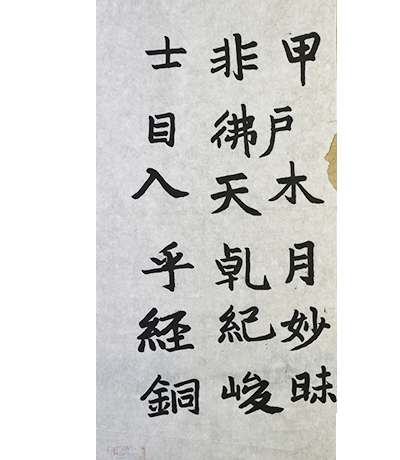 甲戶木月妙昧
非彿天乹紀峻
士目入乎経銅